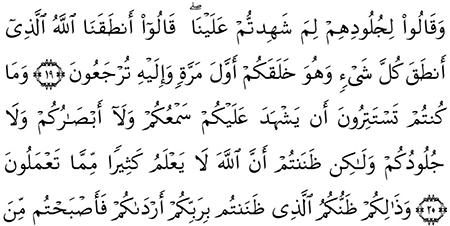 وَقَالُوا۟ لِجُلُودِهِمْ لِمَ شَهِدتُّمْ عَلَيْنَا ۖ قَالُوٓا۟ أَنطَقَنَا ٱللَّهُ ٱلَّذِىٓ
أَنطَقَ كُلَّ شَىْءٍ وَهُوَ خَلَقَكُمْ أَوَّلَ مَرَّةٍ وَإِلَيْهِ تُرْجَعُونَ ﴿١٩﴾ وَمَا
كُنتُمْ تَسْتَتِرُونَ أَن يَشْهَدَ عَلَيْكُمْ سَمْعُكُمْ وَلَآ أَبْصَٰرُكُمْ وَلَا
جُلُودُكُمْ وَلَٰكِن ظَنَنتُمْ أَنَّ ٱللَّهَ لَا يَعْلَمُ كَثِيرًا مِّمَّا تَعْمَلُونَ
﴿٢٠﴾ وَذَٰلِكُمْ ظَنُّكُمُ ٱلَّذِى ظَنَنتُم بِرَبِّكُمْ أَرْدَىٰكُمْ فَأَصْبَحْتُم مِّنَ